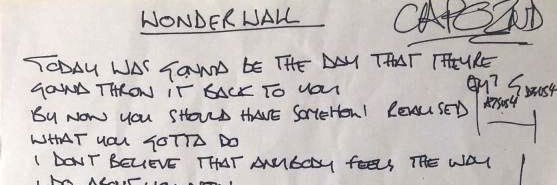 WONDERWALL
CAPO 2ND
TODAY WAS GONNA BE THE DAY THAT THEYRE
GONNA THROW IT BACK TO YOU
Em7 G DSUS4
BY NOW YOU SHOULD HAVE SOMEHOW REALISED A7SUS4
WHAT YOU GOTTA DO
I DONT BELIEVE THAT ANYBODY FEELS THE WAY
I DO ABOUT YOU NOW